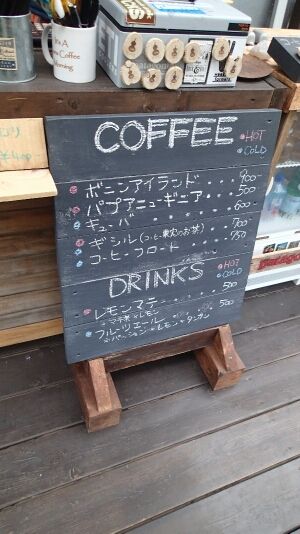 IT'S A
Coffee
Morning
COFFEE
HOT
COLD
ボニンアイランド・・・900-
パプアニューギニア・・500
キューバ・・・・・・600-
ギシル(コーヒー果実のお茶)・・700-
コーヒーフロート・・・750
DRINKS
HOT
COLD
レモンマテ・・・・・500
マテ茶×レモン
フルーツエール・・・500
パッション×レモン×タンカン